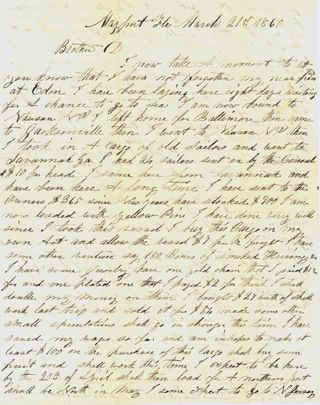 Mayport Flo March 21st 1860
Brother D
I now take a moment to let
you know that I have not forgotten my near friends
at Eden I have been laying here eight days waiting
for a chance to go to sea I am now bound to
Nassau NP I left home for Baltimore then came
to Jacksonville then I went to Nassau NP then
I took in a Cargo of old Sailors and went to
Savannah Ga I had 64 sailors sent on by the Consul
$10 per head I came here from Savannah and
have been here a long time I have sent to the
Owners $365 since New years have stocked $900 I am
now loaded with yellow Pine I have done very well
since I took this vessel I buy this Cargo on my
own hook and allow the vessel $7 pr M freight I have
some other venture say 150 Boxes of Smoked Herring &c
I have some jewelry have one gold chain that I paid $12
for and one plated one that I payed $2 for think I shall
double my money on them I bought $27 worth of shells
work last trip and sold it for $50 made some other
small speculations shall go in strong this time I have
saved my wages so far and am in hopes to make at
least $100 on the purchase of this Cargo shall buy some
fruit and shell work this time I expect to be here
by the 20th of April shall then load for a northern port
shall be North in May I some expect to go to N Jersey